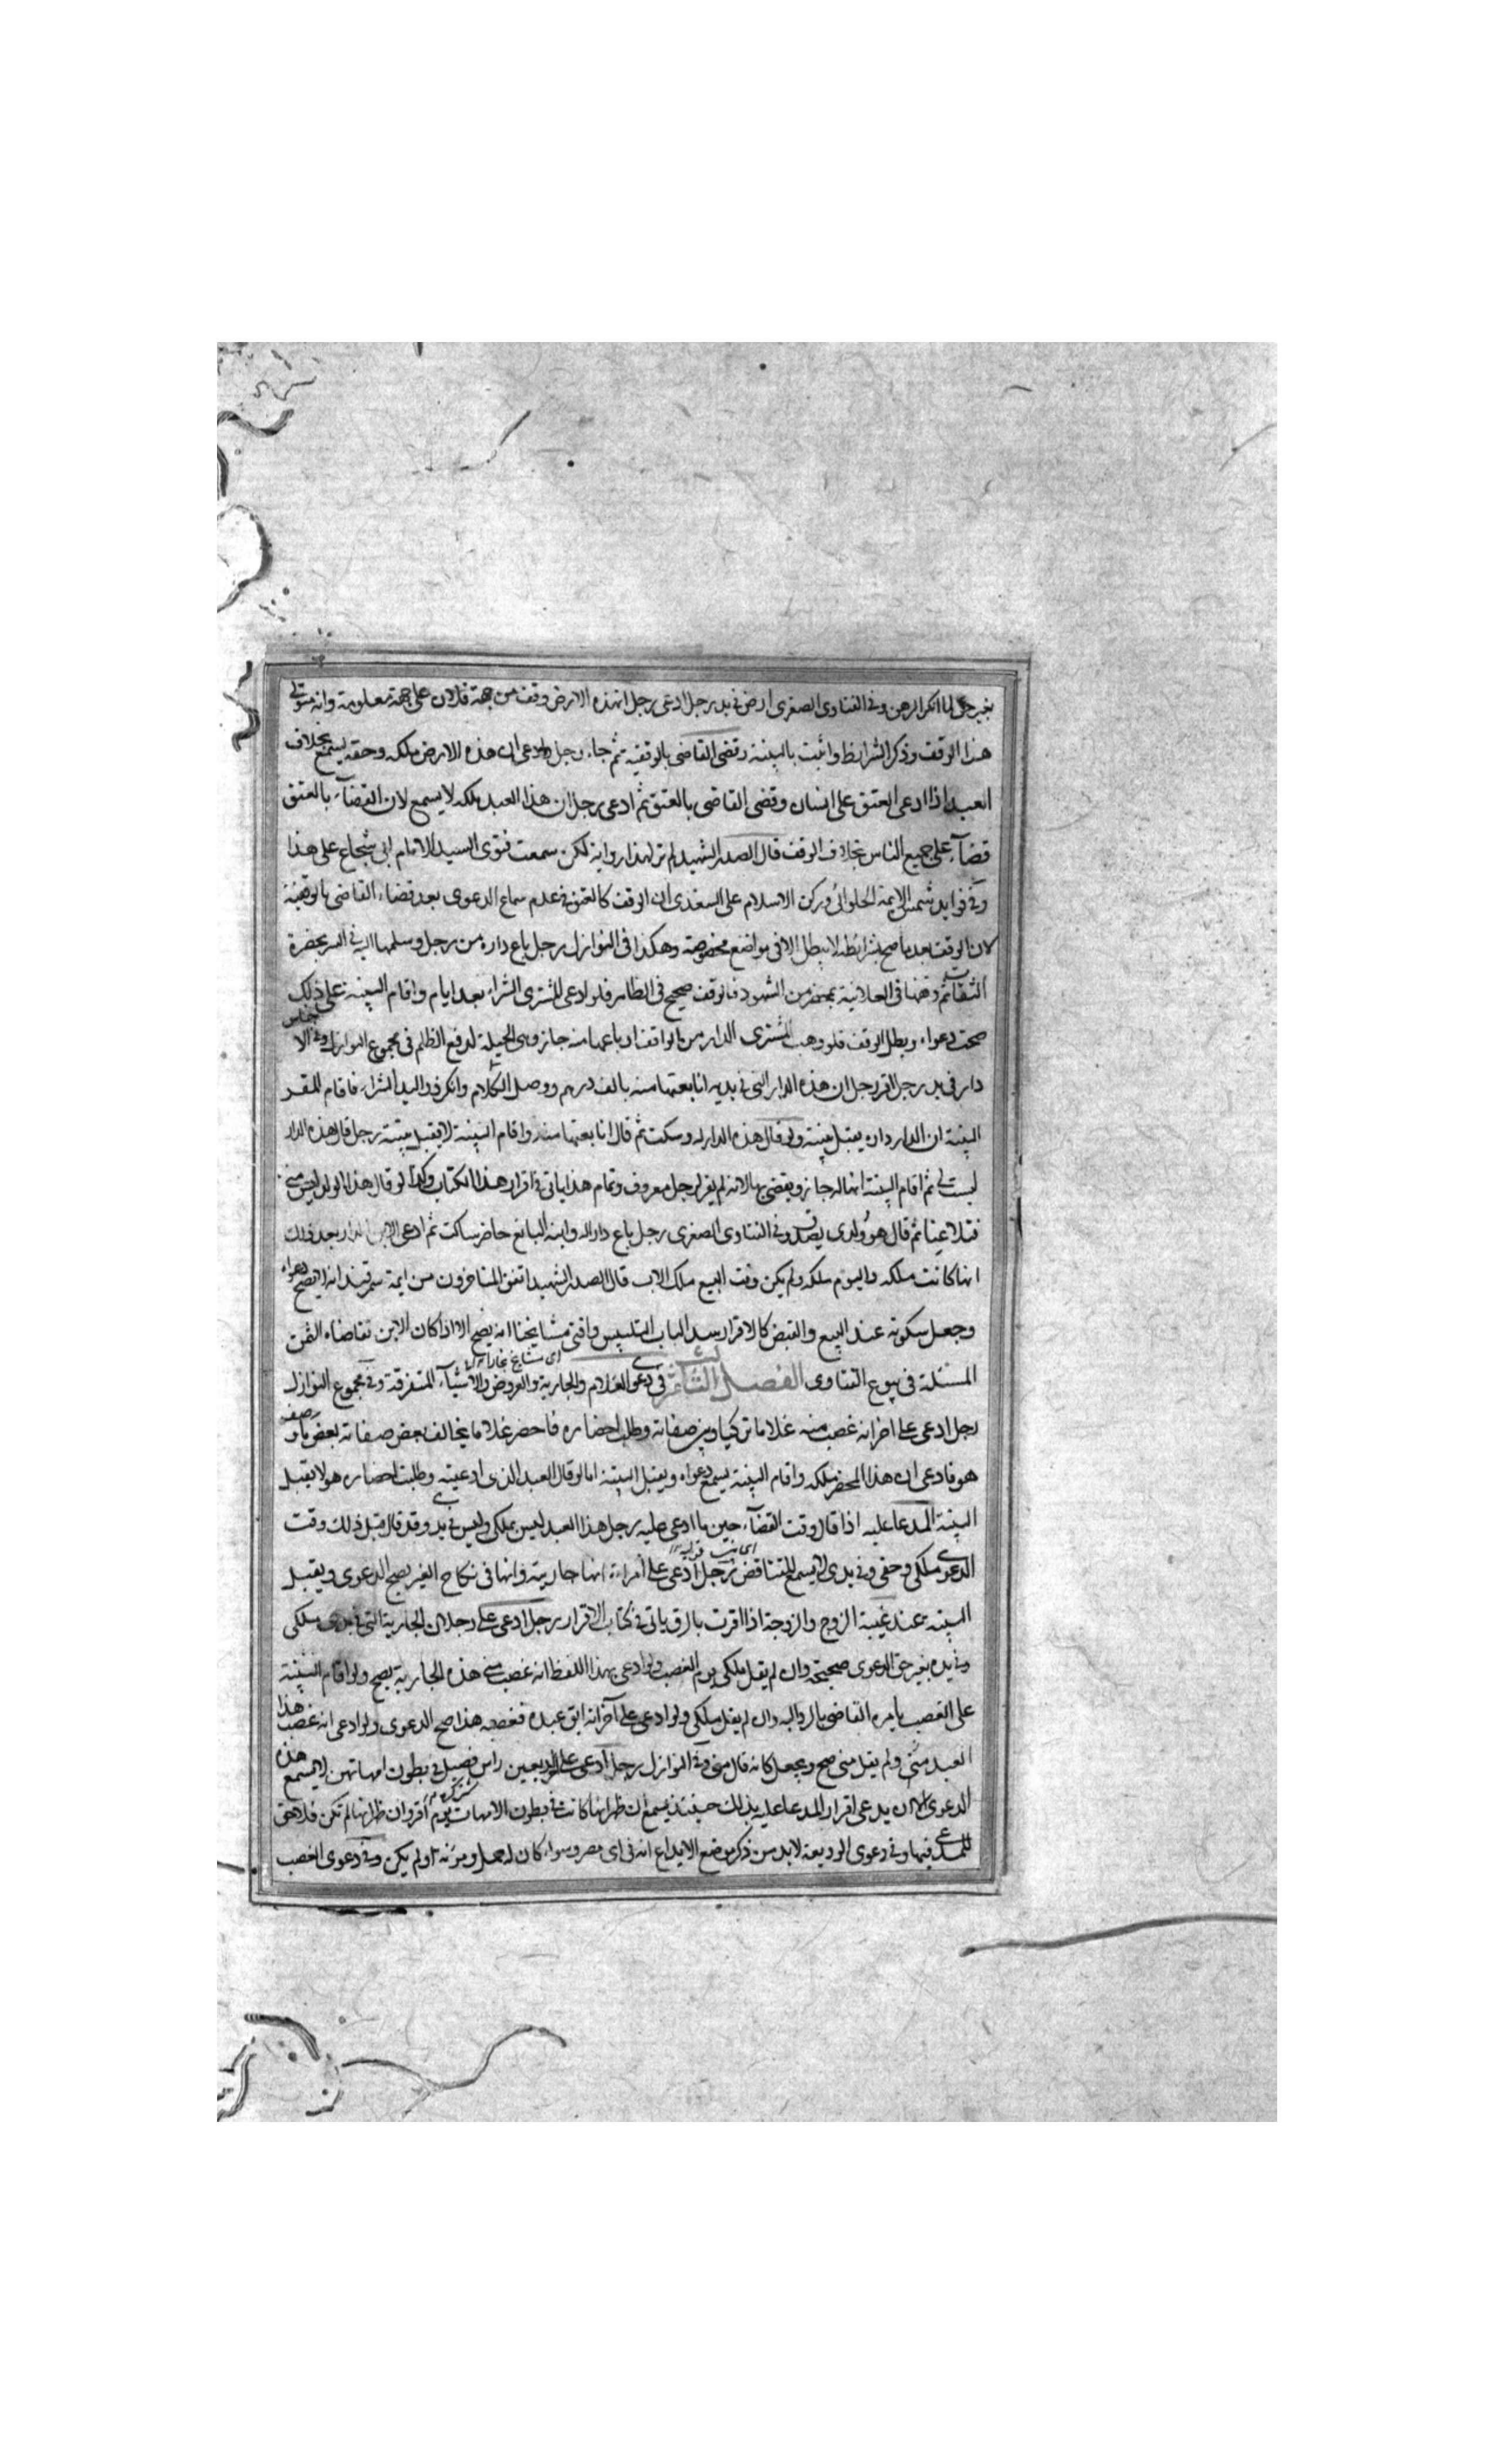 بغير حق لما انكر الرهن وفى الفتاوى الصغرى ارض فى يد رجل ادعى رجل ان هذه الارض وقف من جهة فلان على جهة معلومة وانه متولى
هذا الوقف وذكر الشرايط واثبت بالبينة وقضى القاضى بالوقفية ثم جاء رجل وادعى ان هذه الارض ملكه وحقه يسمع بخلاف
العبد اذا ادعى العتق على انسان وقضى القاضى بالعتق ثم ادعى رجل ان هذا العبد ملكه لا يسمع لان القضاء بالعتق
قضاء على جميع الناس بخلاف الوقف قال الصدر الشهيد لم نر لهذا رواية لكن سمعت فتوى السيد الامام ابى شجاع على هذا
وفى فوايد شمس الايمة الحلوائى وركن الاسلام على السغدى ان الوقف كالعتق فى عدم سماع الدعوى بعد قضاء القاضى بالوقفية
لان الوقف بعد ما صح بشرائطه لا يبطل الا فى مواضع مخصوصة وهكذا فى النوازل رجل باع داره من رجل وسلمها اليه فى السر بحضرة
الثقات ثم وقفها فى العلانية بمحضر من الشهود فالوقف صحيح فى الظاهر فلو ادعى المشترى الشراء بعد ايام واقام البينة على ذلك
صحت دعواه وبطل الوقف فلو وهب المشترى الدار من الواقف او باعها منه جاز وهى الحيلة لدفع الظلم فى مجموع النوازل وفى الاجناس
دار فى يد رجل اقر رجل ان هذه الدار التى فى يديه انا بعتها منه بالف درهم ووصل الكلام وانكر ذو اليد الشراء فاقام المقر
البينة ان الدار داره يقبل بينته ولو قال هذه الدار له وسكت ثم قال انا بعتها منه واقام البينة لا يقبل بينته رجل قال هذه الدار
ليست لى ثم اقام البينة انها له جاز ويقضى بها لانه لم يقر لرجل معروف وتمام هذا ياتى فى اقرار هذا الكتاب وكذا لو قال هذا الولد ليس منى
فتلاعنا ثم قال هو ولدى يصدق وفى الفتاوى الصغرى رجل باع دارا له وابنه البائع حاضر ساكت ثم ادعى الابن الدار بعد ذلك
انها كانت ملكه واليوم ملكه ولم يكن وقت البيع ملك الاب قال الصدر الشهيد اتفق المتاخرون من ايمة سمرقند انه لا يصح دعواه
وجعل سكوته عند البيع والقبض كالاقرار سدا لباب التلبيس وافتى مشايخنا انه يصح الا اذا كان الابن تقاضاه الثمن
اى مشايخ بخارا
المسئلة فى بيوع الفتاوى الفصل الثامن فى دعوى الغلام والجارية والعروض والاشياء المتفرقة وفى مجموع النوازل
رجل ادعى على اخر انه غصب منه غلاما تركيا وبين صفاته وطلب احضاره فاحضر غلاما يخالف بعض صفاته بعض ما وصف
هو فادعى ان هذا المحضر ملكه واقام البينة يسمع دعواه ويقبل البينة اما لو قال العبد الذى ادعيته وطلبت احضاره هو لا يقبل
البينة المدعا عليه اذا قال وقت القضاء حين ما ادعى عليه رجل هذا العبد ليس بملكى وليس فى يدى وقد قال قبل ذلك وقت
الدعوى ملكى وحقى وفى يدى لا يسمع للتناقض رجل ادعى على امراة انها جاريته وانها فى نكاح الغير يصح الدعوى ويقبل
البينة عند غيبة الزوج والزوجة اذا اقرت بالرق ياتى فى كتاب الاقرار رجل ادعى على رجل ان الجارية التى فى يدى ملكى
وفى يده بغير حق الدعوى صحيحة وان لم يقل ملكى يوم الغصب ولو ادعى بهذا اللفظ انه غصب منى هذه الجارية يصح ولو اقام البينة
على الغصب يامره القاضى بالرد اليه وان لم يقل ملكى ولو ادعى على آخر انه ابق عبده فغصبه هذا صح الدعوى ولو ادعى انه غصب هذا
العبد منى ولم يقل منى صح ويجعل كانه قال منى وفى النوازل رجل ادعى على اربعين راس فصيل فى بطون امهاتهن لا يسمع هذه
الدعوى الا ان يدعى اقرار المدعا عليه بذلك حينئذ يسمع ان ظهر انها كانت فى بطون الامهات يوم اقر وان ظهر انها لم تكن فلا حق
للمدعى فيها وفى دعوى الوديعة لا بد من ذكر موضع الايداع انه فى اى مصر وسواء كان له حمل ومؤنة او لم يكن وفى دعوى الغصب